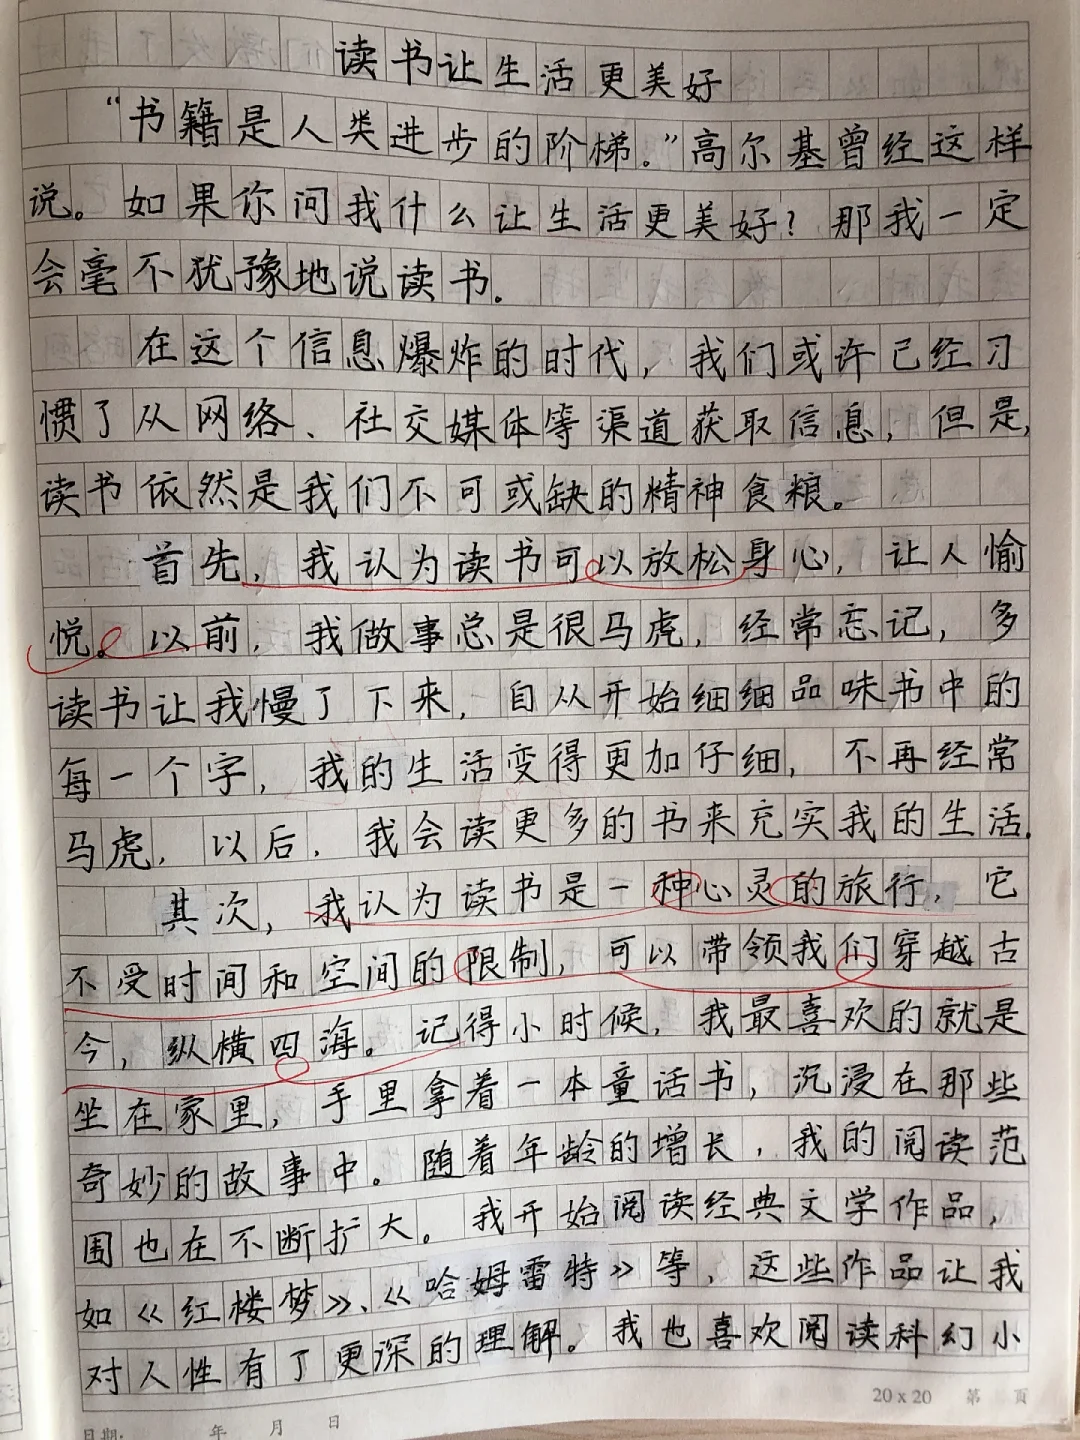 读书让生活更美好
“书籍是人类进步的阶梯。”高尔基曾经这样
说。如果你问我什么让生活更美好？那我一定
会毫不犹豫地说读书.
在这个信息爆炸的时代，我们或许已经习
惯了从网络、社交媒体等渠道获取信息，但是，
读书依然是我们不可或缺的精神食粮。
首先，我认为读书可以放松身心，让人愉
悦。以前，我做事总是很马虎，经常忘记，多
读书让我慢了下来，自从开始细细品味书中的
每一个字，我的生活变得更加仔细，不再经常
马虎，以后，我会读更多的书来充实我的生活.
其次，我认为读书是一种心灵的旅行，它
不受时间和空间的限制，可以带领我们穿越古
今，纵横四海。记得小时候，我最喜欢的就是
坐在家里，手里拿着一本童话书，沉浸在那些
奇妙的故事中。随着年龄的增长，我的阅读范
围也在不断扩大。我开始阅读经典文学作品，
如《红楼梦》、《哈姆雷特》等，这些作品让我
对人性有了更深的理解。我也喜欢阅读科幻小
20×20 第 页
日期: 年 月 日